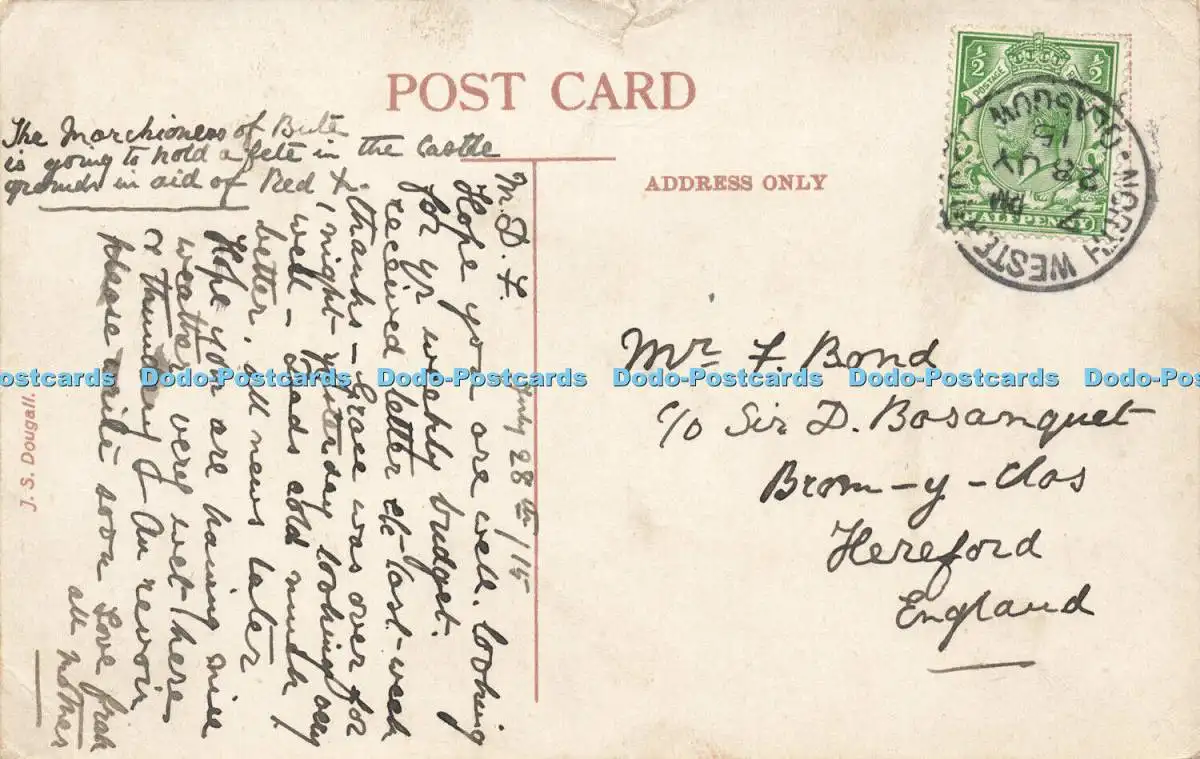 POST CARD
ADDRESS ONLY
The Marchioness of Bute
is going to hold a fete in the Castle
grounds in aid of Red X.
July 28th/15
M. D. F.
Hope you are well. looking
for yr weekly budget.
received letter etc last-week
thanks - Grace was over for
1 night yesterday looking very
well - Dads cold much
better. all news later
Hope you are having nice
weather very wet here
& thundery - Au revoir
please write soon Love from
all Mother
Mr F. Bond
c/o Sir D. Bosanquet
Brom-y-clos
Hereford
England
½ ½
POSTAGE
HALFPENNY
NORTH WESTERN
GLASGOW
7 PM
28 JY
15
J. S. Dougall.
Dodo-Postcards Dodo-Postcards Dodo-Postcards Dodo-Postcards Dodo-Postcards Dodo-Postcards